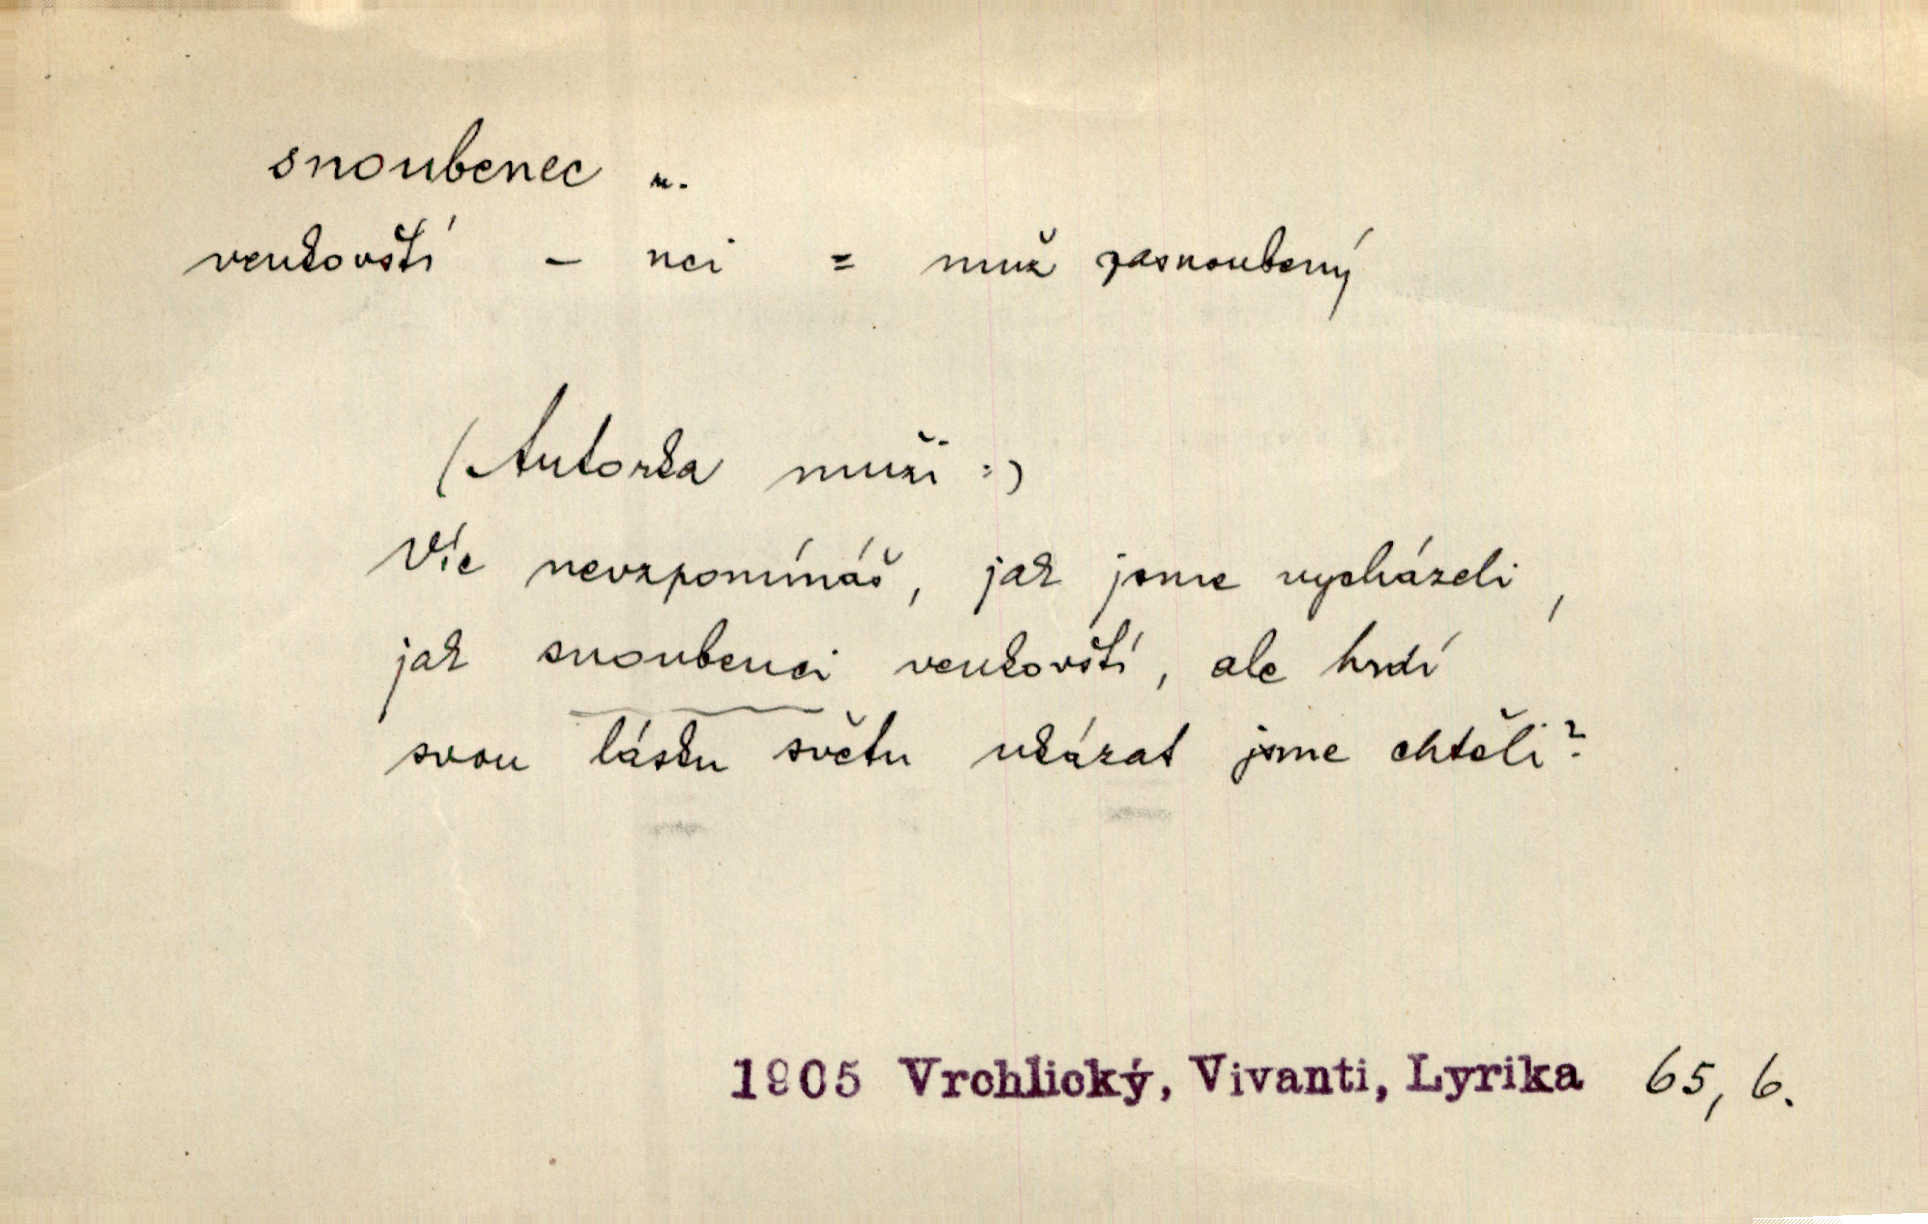 snoubenec m.
venkovští – nci = muž zasnoubený
(Autorka muži :)
Víc nevzpomínáš, jak jsme vycházeli,
jak snoubenci venkovští, ale hrdí
svou lásku světu ukázat jsme chtěli?
1905 Vrchlický, Vivanti, Lyrika 65, 6.